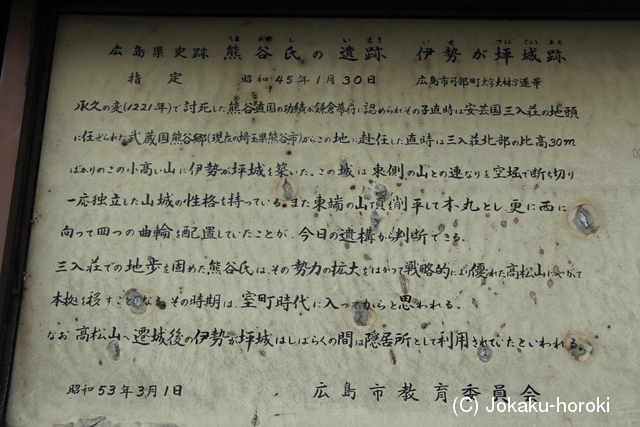 広島県史跡 熊谷氏の遺跡 伊勢が坪城跡
くま がい し いせき い せ つぼ じょう あと
指定 昭和45年1月30日 広島市可部町大字大林字蓮華
承久の変(1221年)で討死した熊谷直国の功績が鎌倉幕府に認められその子直時は安芸国三入荘の地頭
に任ぜられた武蔵国熊谷郷(現在の埼玉県熊谷市)からこの地に赴任した直時は三入荘北部の比高30m
ばかりのこの小高い山に伊勢が坪城を築いた。この城は東側の山との連なりを空堀で断ち切り
一応独立した山城の性格を持っている。また東端の山頂を削平して本丸とし、更に西に
向って四つの曲輪を配置していたことが、今日の遺構から判断できる。
三入荘での地歩を固めた熊谷氏は、その勢力の拡大をはかって戦略的により優れた高松山にやがて
本拠を移すことになる。その時期は、室町時代に入ってからと思われる。
なお高松山へ遷城後の伊勢が坪城はしばらくの間は隠居所として利用されていたといわれる。
昭和53年3月1日 広島市教育委員会
(C) Jokaku-horoki